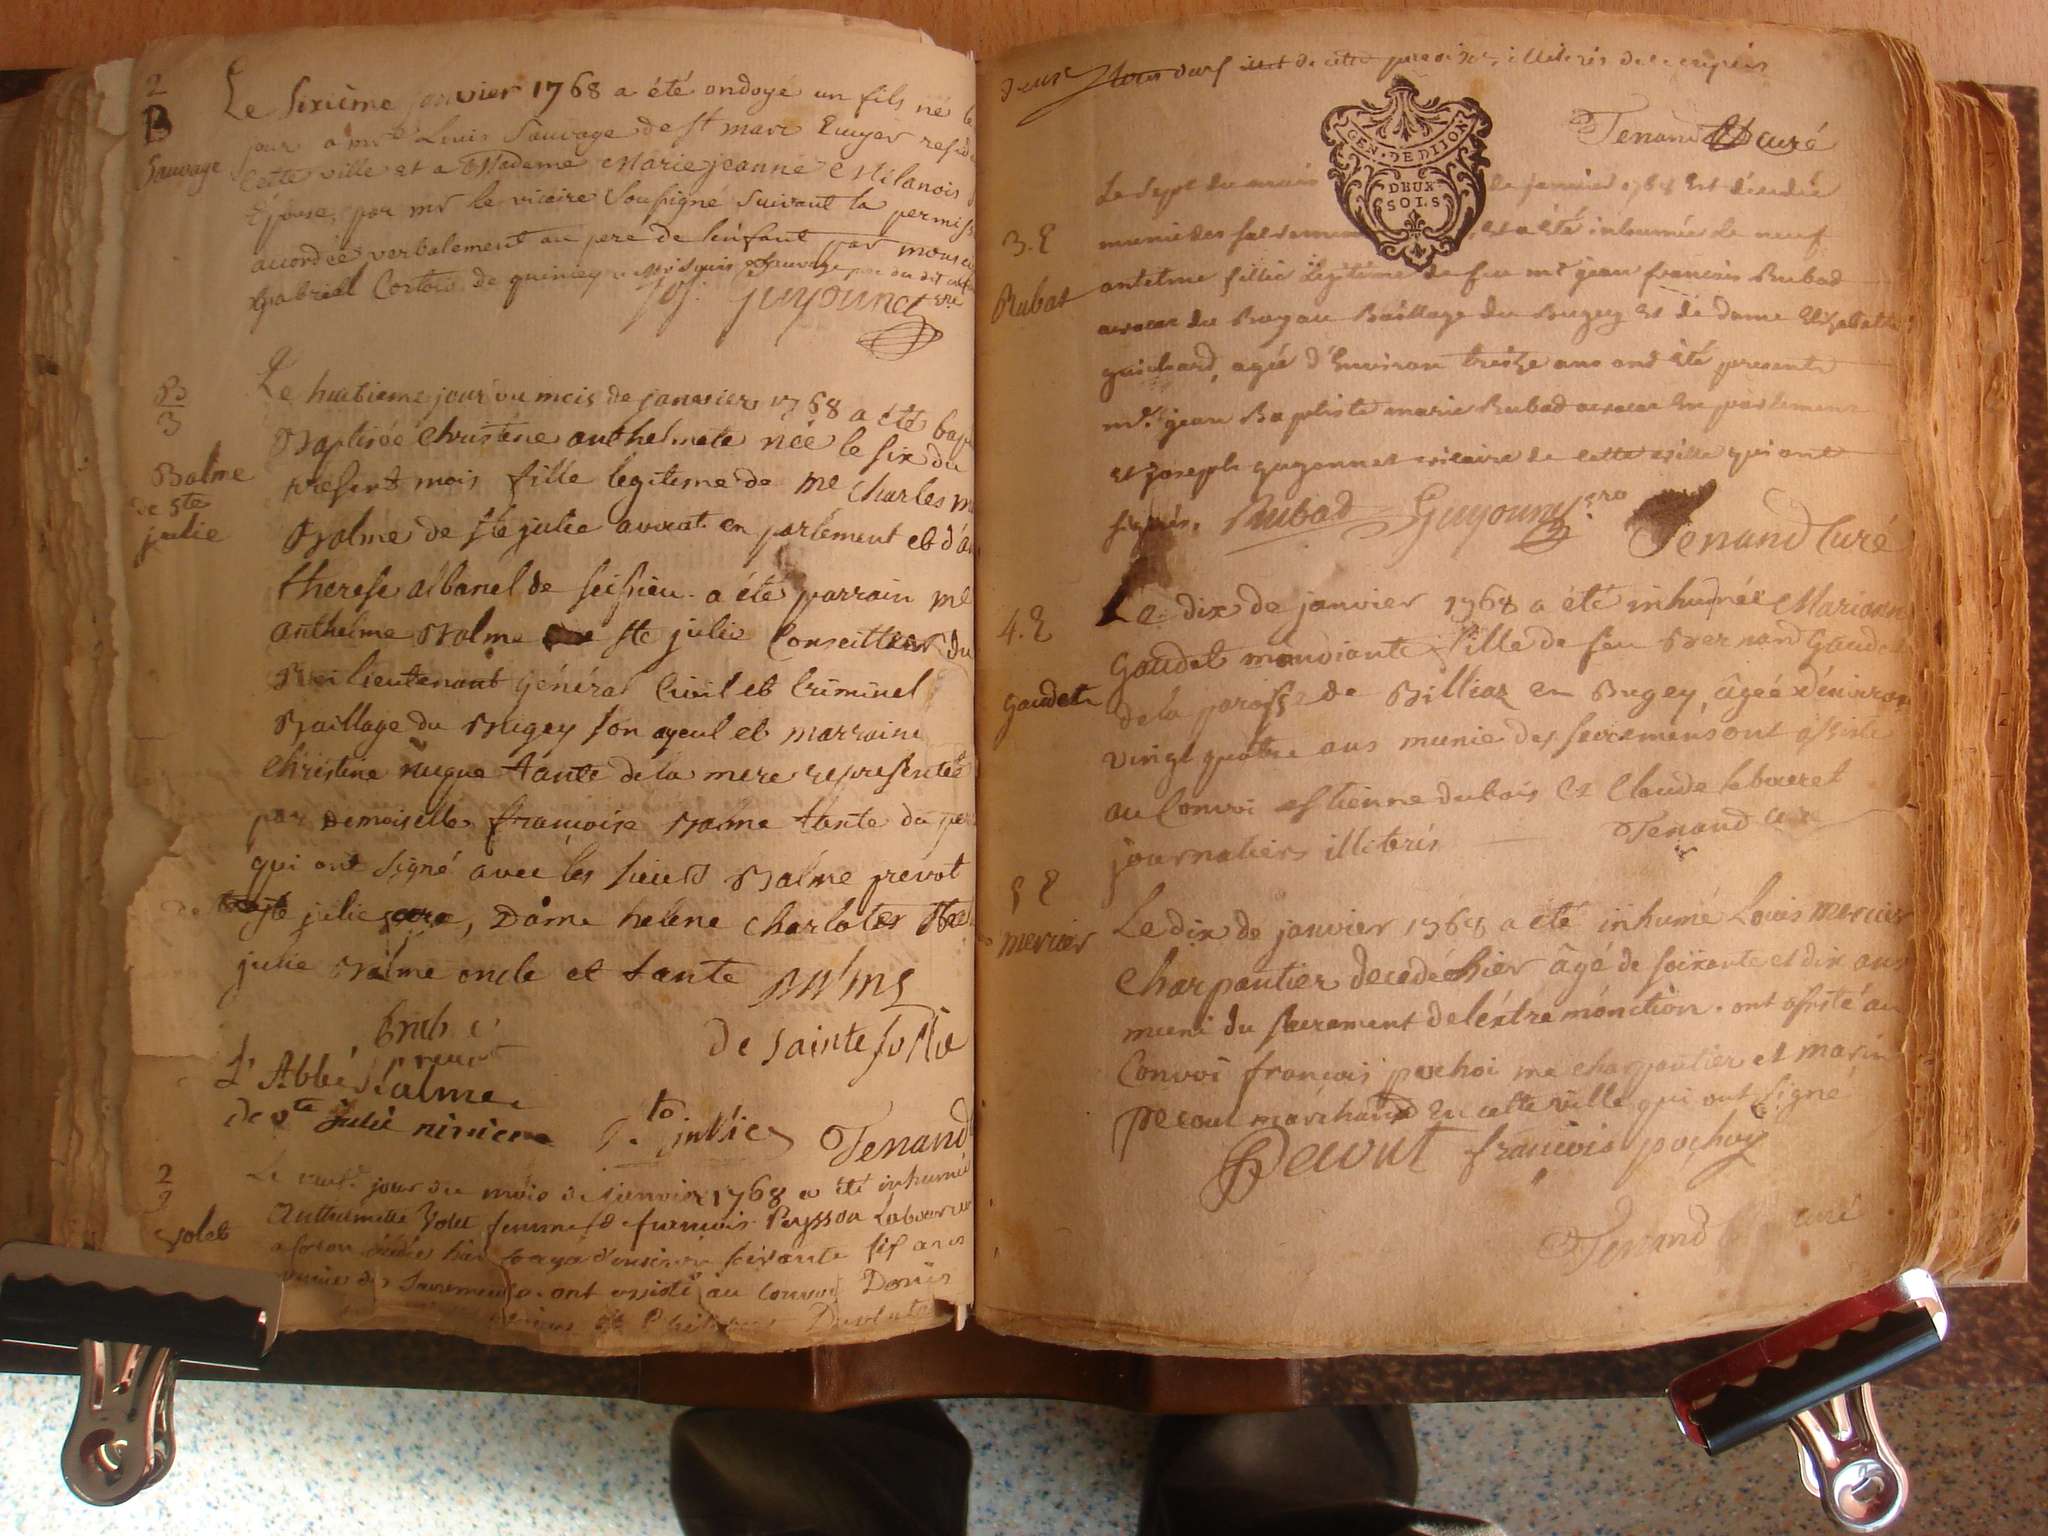 2
B
Sauvage
Le Sixième janvier 1768 a été ondoyé un fils né le
jour a mre Louis Sauvage de st marc Ecuyer resid
cette ville et a Madame Marie jeanne Milanois
Epouse, par mr le vicaire Soussigné suivant la permiss
accordée verbalement au pere de l'enfant par
Gabriel Cortois de quincey Sauvage
jos. guyounet
B
3
Balme
de ste
julie
Le huitieme jour du mois de janvier 1768 a été bap
Baptisée christine anthelmete née le six du
present mois fille legitime de me charles m
Balme de ste julie avocat en parlement et d'a
therese albanel de seissieu. a été parrain me
anthelme Balme ste julie Conseiller du
Roi lieutenant général Civil et Criminel
Baillage du Bugey son ayeul et marraine
christine nugue tante de la mere representée
par Demoiselle francoise Balme tante du per
qui ont signé avec les sieurs Balme prevot
de ste julie, Dame helene charlote ste
julie Balme oncle et tante Balme
de sainte Julie
L'Abbé Balme
de ste julie
julie Tenand
2
9
Volet
Le neuf. jour du mois de janvier 1768 a été inhumée
Anthelmette Volet femme de francois Peysson Laboureur
soixante six ans
munie des Sacremens. ont assisté au convoi Denis
deux de cette paroisse illiterés de ce enquis
Tenand curé
GEN. DE DIJON
DEUX
SOLS
3. E
Rubat
Le sept du mois de janvier 1768 est décedée
munie des sacremens, et a été inhumée le neuf
antelme fillie legitime de feu mr jean francois Rubad
avocat du Roy au Baillage du Bugey et de dame Elizabette
guichard, agée d'Environ treize ans ont été presents
mr. jean Baptiste marie Rubad avocat En parlement
et joseph guyonnet vicaire de cette ville qui ont
signés. Rubad Guyounet Tenand Curé
4. E
Gaudet
Le dix de janvier 1768 a été inhumée Marianne
Gaudet mandiante fille de feu Bernand Gaudet
de la paroisse de Billiaz en Bugey, âgée d'environ
vingt quatre ans munie des sacremens ont assisté
au Convoi estienne dubois et Claude laboeret
journaliers illiterés Tenand curé
5 E
mercier
Le dix de janvier 1768 a été inhumé Louis mercier
Charpantier decedé hier âgé de soixante et dix ans
muni du sacrement de l'extrémonction. ont assisté au
Convoi francois pochoi me charpantier et marin
pecout marchand En cette ville qui ont signé
Pecout francois pochoy
Tenand curé